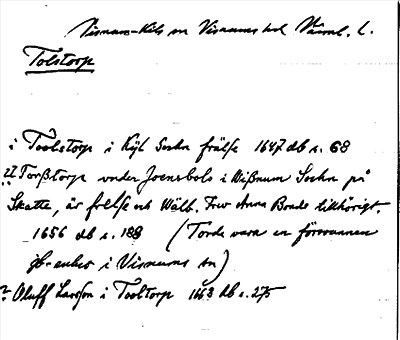 Visnums-Kils sn Visnums hd Värml. l.
Tolstorp
i Toolstorp i Kijl Sochn frälse 1647 db s. 68
?? Torßtorp under Joensbols i Wißnum Sochn på
Skatte, är frelse och Wälb. Frw Anna Bonde tillhörigt.
1656 db s. 188 (Torde vara en försvunnen
i Visnums sn)
? Oluff Larsson i Tooltorp 1663 db s. 275